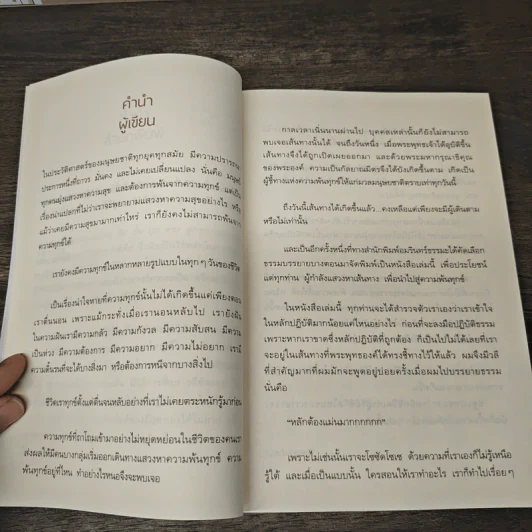 คำนำ
ผู้เขียน
ในประวัติศาสตร์ของมนุษยชาติทุกยุคทุกสมัย มีความปรารถนา
ประการหนึ่งที่ถาวร มั่นคง และไม่เคยเปลี่ยนแปลง นั่นคือ มนุษย์
ทุกคนมุ่งแสวงหาความสุข และต้องการพ้นจากความทุกข์ แต่เป็น
เรื่องน่าแปลกที่ไม่ว่าเราจะพยายามแสวงหาความสุขอย่างไร หรือ
แม้ว่าบางคนจะมีความสุขมามากเท่าไหร่ เราก็ยังคงไม่สามารถพ้นจาก
ความทุกข์ได้
เรายังคงมีความทุกข์ในหลากหลายรูปแบบในทุก ๆ วันของชีวิต
เป็นเรื่องน่าใจหายที่ความทุกข์นั้นไม่ได้เกิดขึ้นแต่เพียงตอน
เราตื่นนอน เพราะแม้กระทั่งเมื่อเรานอนหลับไป เรายังฝัน
ในความฝันเรามีความกลัว มีความกังวล มีความสับสน มีความ
เป็นห่วง มีความต้องการ มีความอยาก มีความไม่อยาก เรามี
ความดิ้นรนที่จะได้บางสิ่งมา หรือต้องการหนีจากบางสิ่งไป
ชีวิตเราทุกข์ตั้งแต่ตื่นจนหลับอย่างที่เราไม่เคยตระหนักรู้มาก่อน
ความทุกข์ที่ถาโถมเข้ามาอย่างไม่หยุดหย่อนในชีวิตของคนเรา
ส่งผลให้มีคนบางกลุ่มเริ่มออกเดินทางแสวงหาความพ้นทุกข์ ความ
พ้นทุกข์อยู่ที่ไหน ทำอย่างไรหนอจึงจะพบเจอ
กาลเวลาเนิ่นนานผ่านไป บุคคลเหล่านั้นก็ยังไม่สามารถ
พบเจอเส้นทางนั้นได้ จนถึงวันหนึ่ง เมื่อพระพุทธเจ้าได้อุบัติขึ้น
เส้นทางจึงได้ถูกเปิดเผยออกมา และด้วยพระมหากรุณาธิคุณ
ของพระองค์ ความเป็นกัลยาณมิตรจึงได้บังเกิดขึ้นตาม เกิดเป็น
ผู้ชี้ทางแห่งความพ้นทุกข์ให้แก่มวลมนุษยชาติตราบเท่าทุกวันนี้
ถึงวันนี้เส้นทางได้เกิดขึ้นแล้ว...คงเหลือแต่เพียงจะมีผู้เดินตาม
หรือไม่เท่านั้น
และเป็นอีกครั้งหนึ่งที่ทางสำนักพิมพ์อมรินทร์ธรรมะได้คัดเลือก
ธรรมบรรยายบางตอนมาจัดพิมพ์เป็นหนังสือเล่มนี้ เพื่อประโยชน์
แด่ทุกท่าน ผู้กำลังแสวงหาเส้นทาง เพื่อนำไปสู่ความพ้นทุกข์
ในหนังสือเล่มนี้ ทุกท่านจะได้สำรวจตัวเราเองว่าเราเข้าใจ
ในหลักปฏิบัติมากน้อยแค่ไหนอย่างไร ก่อนที่จะลงมือปฏิบัติธรรม
เพราะหากเราขาดซึ่งหลักปฏิบัติที่ถูกต้อง ก็เป็นไปไม่ได้เลยที่เรา
จะอยู่ในเส้นทางที่พระพุทธองค์ได้ทรงชี้ทางไว้ให้แล้ว ผมจึงมีวลี
ที่สำคัญมากที่ผมมักจะพูดอยู่บ่อยครั้งเมื่อผมไปบรรยายธรรม
นั่นคือ
"หลักต้องแม่นมากกกกกก"
เพราะไม่เช่นนั้นเราจะโซซัดโซเซ ด้วยความที่เราเองก็ไม่รู้เหนือ
รู้ใต้ และเมื่อเป็นแบบนั้น ใครสอนให้เราทำอะไร เราก็ทำไปเรื่อย ๆ